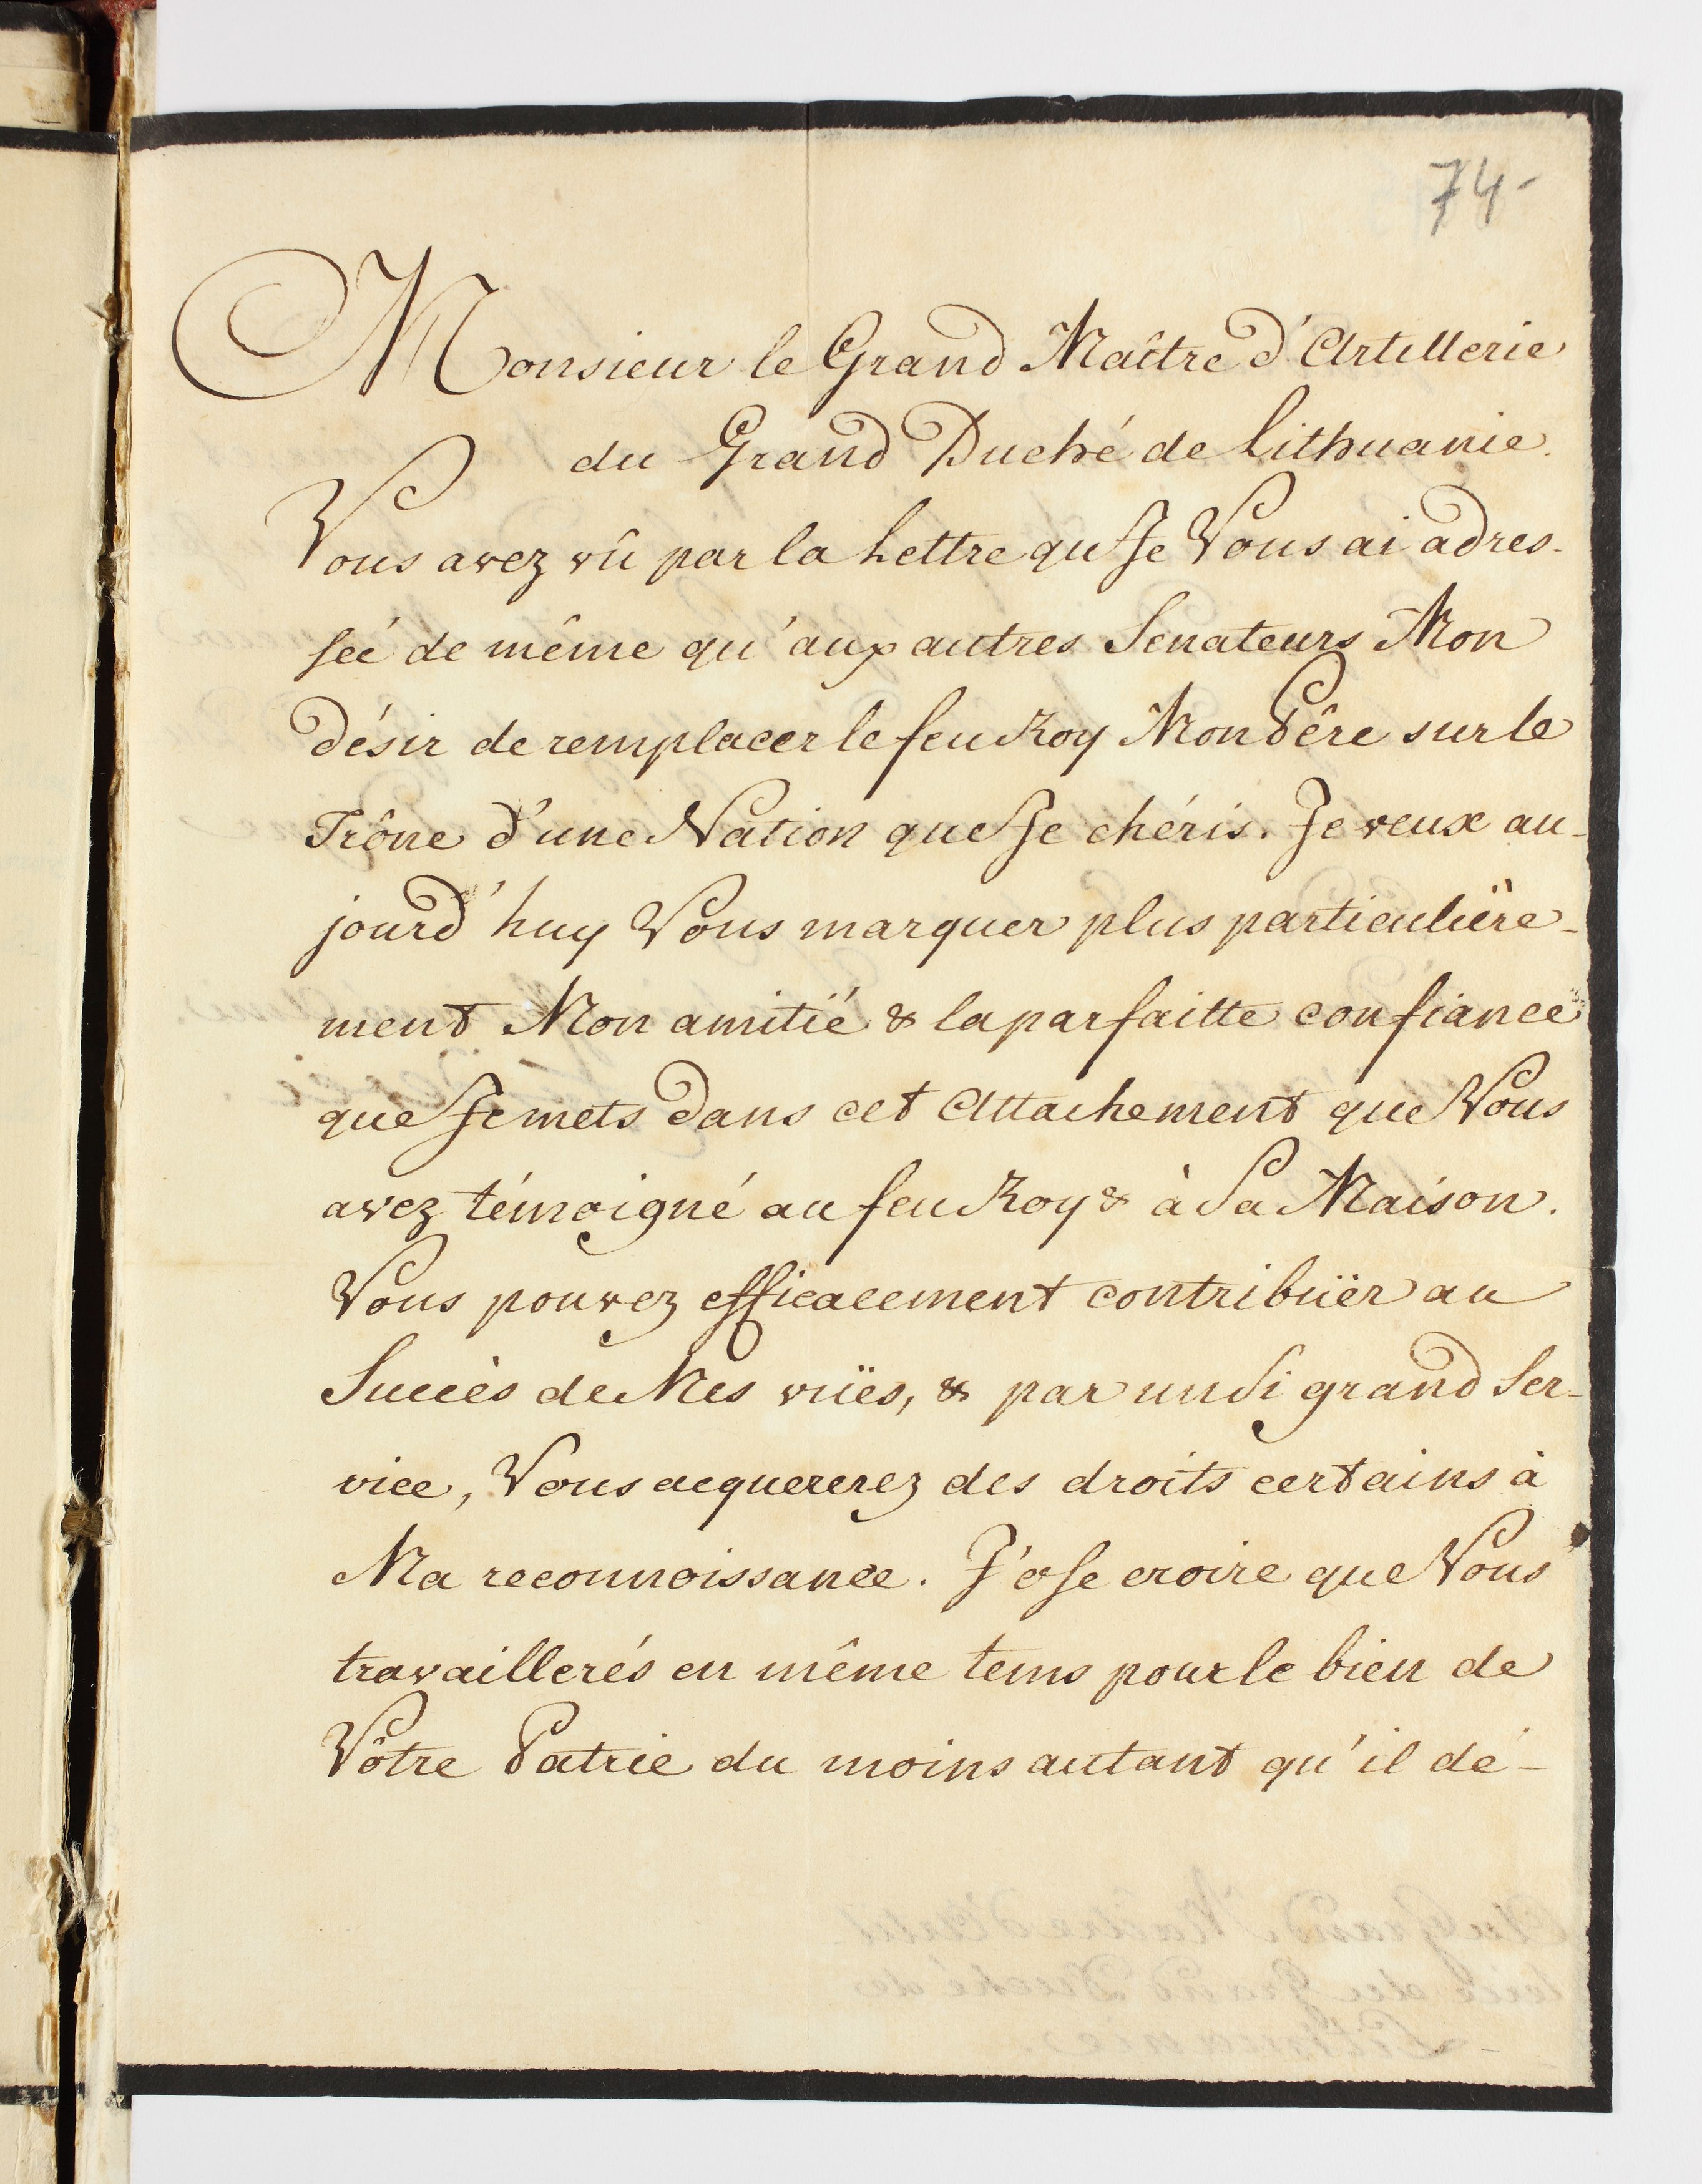 74-
Monsieur le Grand Maître d'Artillerie
du Grand Duché de Lithuanie.
Vous avez vû par la Lettre que Je Vous ai adres-
sée de même qu'aux autres Senateurs Mon
désir de remplacer le feu Roy Mon Pêre sur le
Trône d'une Nation que Je chéris. Je veux au-
jourd'huy Vous marquer plus particuliëre-
ment Mon amitié & la parfaitte confiance
que Je mets dans cet Attachement que Vous
avez témoigné au feu Roy & à Sa Maison.
Vous pouvez efficacement contribuër au
Succès de Mes vuës, & par un Si grand Ser-
vice, Vous acquererez des droits certains à
Ma reconnoissance. J'ose croire que Vous
travaillerés en même tems pour le bien de
Vôtre Patrie du moins autant qu'il dé-